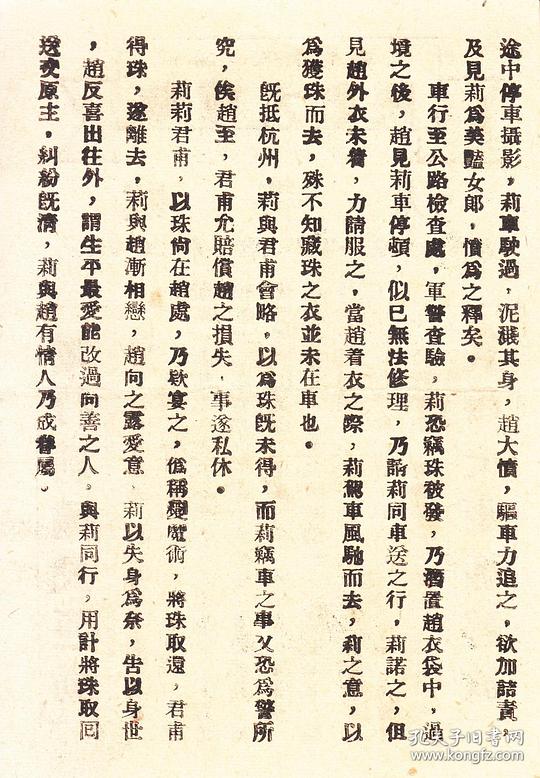 途中停車攝影，莉車駛過，泥濺其身，趙大憤，驅車力追之，欲加詰責，
及見莉爲美豔女郎，憤爲之釋矣。
車行至公路檢查處，軍警查驗，莉恐竊珠被發，乃潛置趙衣袋中，過
境之後，趙見莉車停頓，似已無法修理，乃請莉同車送之行，莉諾之，但
見趙外衣未着，力請服之，當趙着衣之際，莉駕車風馳而去，莉之意，以
爲獲珠而去，殊不知藏珠之衣並未在車也。
既抵杭州，莉與君甫會晤，以爲珠既未得，而莉竊車之事又恐爲警所
究，俟趙至，君甫允賠償趙之損失，事遂私休。
莉莉君甫，以珠尚在趙處，乃欵宴之，僞稱變魔術，將珠取還，君甫
得珠，遂離去，莉與趙漸相戀，趙向之露愛意，莉以失身爲奈，告以身世
，趙反喜出往外，謂生平最愛能改過向善之人。與莉同行，用計將珠取回
送交原主，糾紛既清，莉與趙有情人乃成眷屬。
孔夫子旧书网
www.kongfz.com